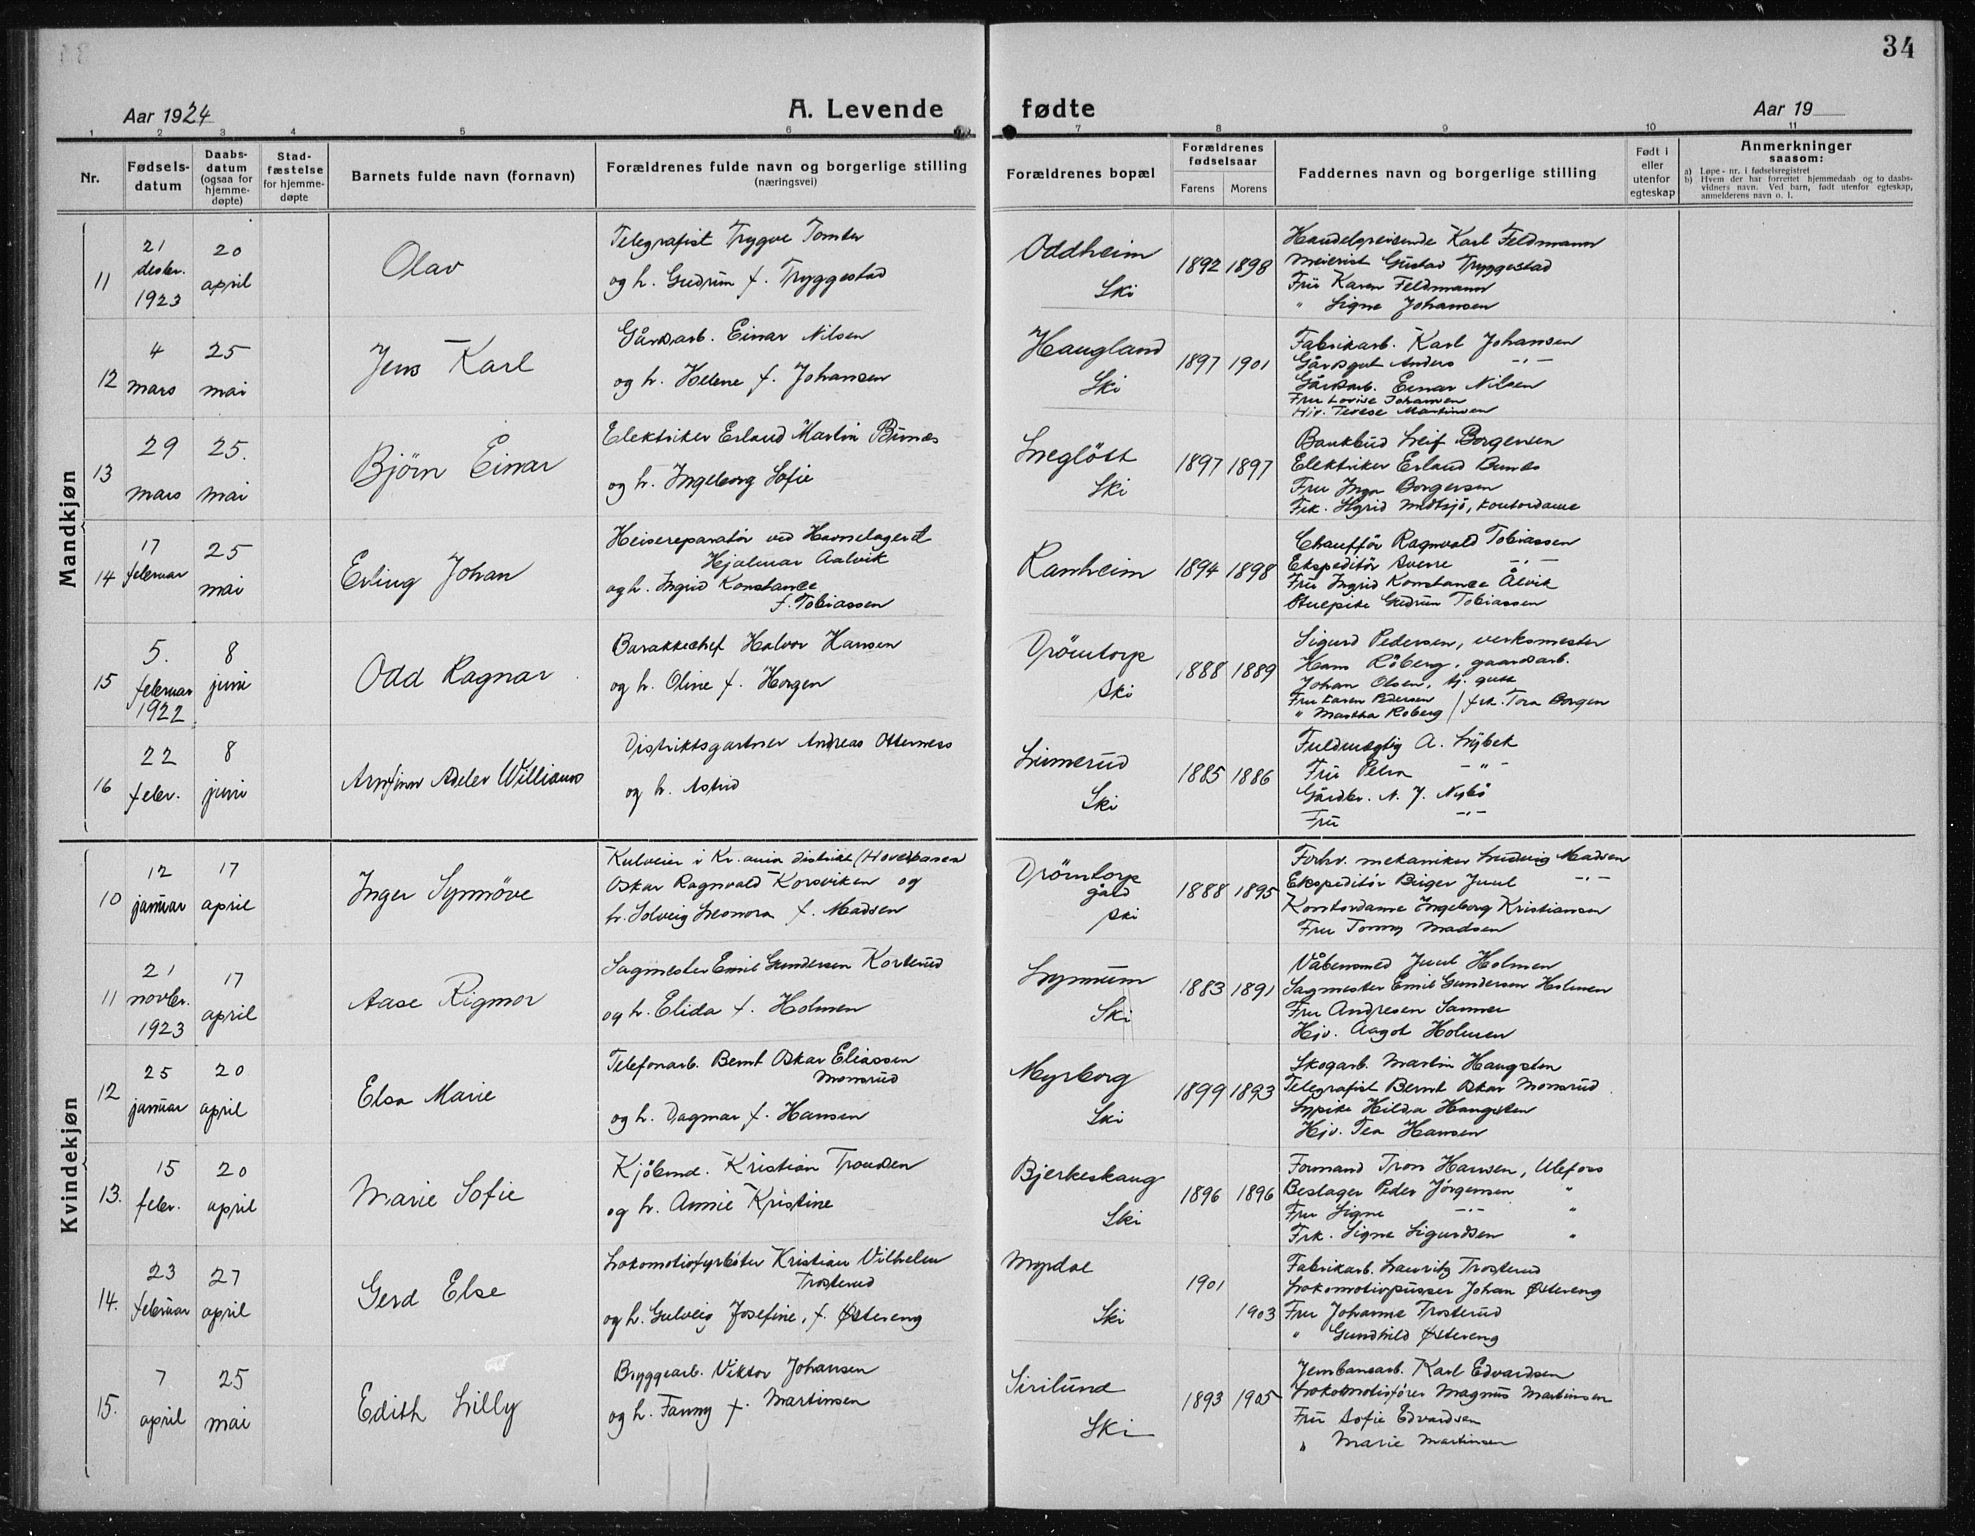 34
Aar 1924
A. Levende fødte
Aar 19
1 2 3 4 5 6 7 8 9 10 11
Nr.
Fødselsdatum
Daabsdatum (ogsaa for hjemmedøpte)
Stadfæstelse for hjemmedøpte
Barnets fulde navn (fornavn)
Forældrenes fulde navn og borgerlige stilling (næringsvei)
Forældrenes bopæl
Forældrenes fødselsaar
Farens Morens
Faddernes navn og borgerlige stilling
Født i eller utenfor egteskap
Anmerkninger saasom:
a) Løpe-nr. i fødselsregistret
b) Hvem der har forrettet hjemmedaab og to daabsvidners navn. Ved barn, født utenfor egteskap, anmelderens navn o. l.
Mandkjøn
11
21 desbr. 1923
20 april
Olav
Telegrafist Trygve Tomter
og h. Gudrun f. Tryggestad
Oddheim
Ski
1892 1898
Handelsreisende Karl Feldmann
Meierist Gustav Tryggestad
Fru Karen Feldmann
" Signe Johansen
12
4 mars
25 mai
Jens Karl
Gårdsarb. Einar Nilsen
og h. Helene f. Johansen
Haugland
Ski
1897 1901
Fabrikarb. Karl Johansen
Gårdsgut Anders -"-
Gårdsarb. Einar Nilsen
Fru Lovise Johansen
Hjv. Terese Martinsen
13
29 mars
25. mai
Bjørn Einar
Elektriker Erland Martin Bunæs
og h. Ingeborg Sofie
Sneglött
Ski
1897 1897
Bankbud Leif Borgersen
Elektriker Erland Bunæs
Fru Inga Borgersen
Frk. Sigrid Midtsjø, kontordame
14
17 februar
25 mai
Erling Johan
Heisereparatør ved Havnelageret
Hjalmar Aalvik
og h. Ingrid Konstance
f. Tobiassen
Ranheim
1894 1898
Chauffør Ragnvald Tobiassen
Ekspeditør Sverre -"-
Fru Ingrid Konstance Ålvik
Stuepike Gudrun Tobiassen
15
5. februar 1922
8 juni
Odd Ragnar
Barakkechef Halvor Hansen
og h. Oline f. Horgen
Drömtorp
Ski
1888 1889
Sigurd Pedersen, verksmester
Hans Röberg, gaardsarb.
Johan Olsen, tj. gutt
Fru Karen Pedersen
" Martha Roberg / frk. Tora Borgen
16
22 febr.
8 juni
Arnfinn Adeler William
Distriktsgartner Andreas Otterness
og h. Astrid
Limerud
Ski
1885 1886
Fuldmægtig A. Lybek
Fru Petra -"-
Gårdbr. N. J. Nybö
Fru -"-
Kvindekjøn
10
12 januar
17 april
Inger Synnöve
Kulveier i Kr.ania distrikt (Hovedbanen)
Oskar Ragnvald Korsviken og
h. Solveig Leonora f. Madsen
Drömtorp gård
Ski
1888 1895
Forhv. mekaniker Ludvig Madsen
Ekspeditör Birger Juul -"-
Kontordame Ingeborg Kristiansen
Fru Tommy Madsen
11
21 novbr. 1923
17 april
Aase Rigmor
Sagmester Emil Gundersen Korterud
og h. Elida f. Holmen
Ski
1883 1891
Våbensmed Juul Holmen
Sagmester Emil Gundersen Holmen
Fru Andresen Sanner
Hjv. Aagot Holmen
12
25 januar
20 april
Elsa Marie
Telefonarb. Bernt Oskar Eliassen
Monsrud
og h. Dagmar f. Hansen
Myrborg
Ski
1899 1893
Skogarb. Martin Haugsten
Telegrafist Bernt Oskar Monsrud
Sypike Hilda Haugsten
Hjv. Tea Hansen
13.
15 febr.
20 april
Marie Sofie
Kjöbmd. Kristian Trondsen
og h. Annie Kristine
Bjerkeskaug
Ski
1896 1896
Formand Tron Hansen, Ulefoss
Beslager Peder Jörgensen "
Fru Signe -"- "
Frk. Signe Sigurdsen "
14.
23 februar
27 april
Gerd Else
Lokomotivfyrbøter Kristian Vilhelm
Trosterud
og h. Gulveig Josefine, f. Østereng
Myrdal
Ski
1901 1903
Fabrikarb. Lauritz Trosterud
Lokomotivpusser Johan Østereng
Fru Johanne Trosterud
" Gundhild Østereng
15.
7 april
25 mai
Edith Lilly
Bryggearb. Viktor Johansen
og h. Fanny f. Martinsen
Sirilund
Ski
1893 1905
Jernbanearb. Karl Edvardsen
Lokomotivfører Magnus Martinsen
Fru Sofie Edvardsen
" Marie Martinsen